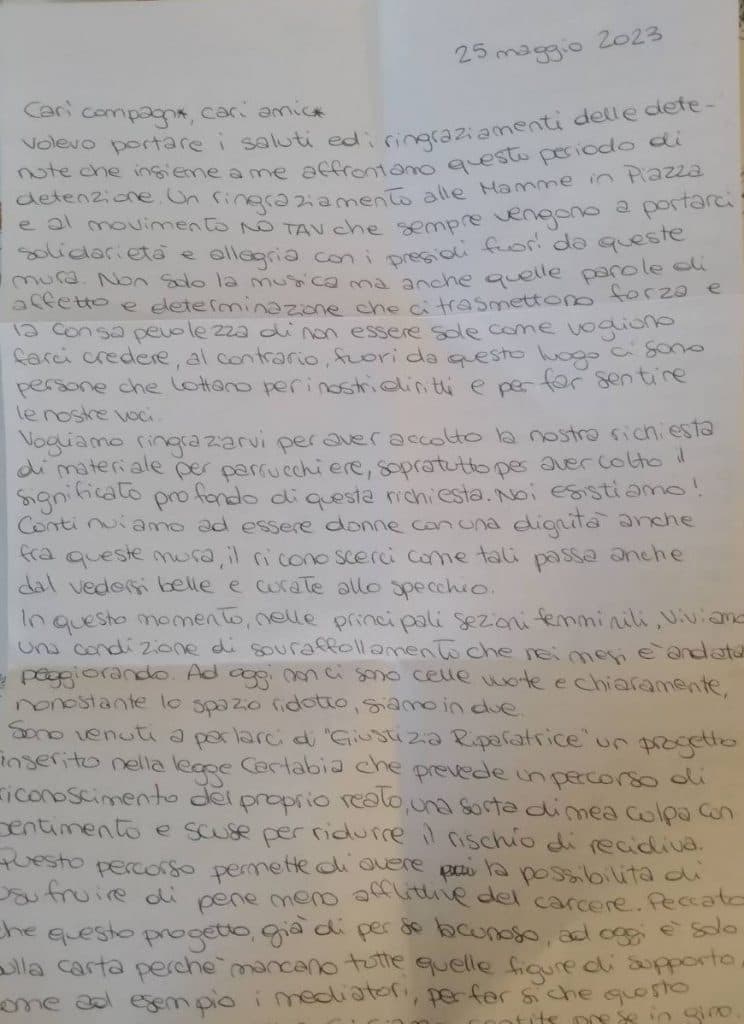 25 maggio 2023
Cari compagn*, cari amic*
volevo portare i saluti ed i ringraziamenti delle dete-
nute che insieme a me affrontano questo periodo di
detenzione. Un ringraziamento alle Mamme in Piazza
e al movimento NO TAV che sempre vengono a portarci
solidarietà e allegria con i presidi fuori da queste
mura. Non solo la musica ma anche quelle parole di
affetto e determinazione che ci trasmettono forza e
la consapevolezza di non essere sole come vogliono
farci credere, al contrario, fuori da questo luogo ci sono
persone che lottano per i nostri diritti e per far sentire
le nostre voci.
Vogliamo ringraziarvi per aver accolto la nostra richiesta
di materiale per parrucchiere, sopratutto per aver colto il
significato profondo di questa richiesta. Noi esistiamo!
Continuiamo ad essere donne con una dignità anche
fra queste mura, il riconoscerci come tali passa anche
dal vedersi belle e curate allo specchio.
In questo momento, nelle principali sezioni femminili, viviamo
una condizione di sovraffollamento che nei mesi è andata
peggiorando. Ad oggi non ci sono celle vuote e chiaramente,
nonostante lo spazio ridotto, siamo in due.
Sono venuti a parlarci di "Giustizia Riparatrice" un progetto
inserito nella legge Certabia che prevede un percorso di
riconoscimento del proprio reato, una sorta di mea culpa con
pentimento e scuse per ridurre il rischio di recidiva.
Questo percorso permette di avere la possibilità di
usufruire di pene meno afflittive del carcere. Peccato
che questo progetto, già di per se lacunoso, ad oggi è solo
sulla carta perchè mancano tutte quelle figure di supporto,
come ad esempio i mediatori, per far si che questo
sentite prese in giro.